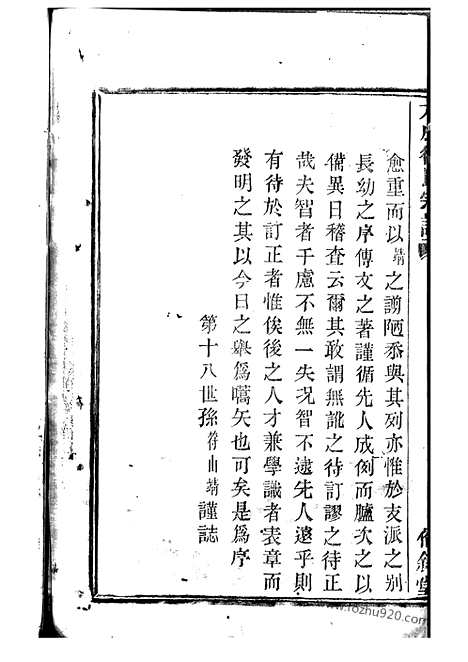 愈重而以靖之謭陋忝與其列亦惟於支派之別
長幼之序傳文之著謹循先人成例而臚次之以
備異日稽查云爾其敢謂無訛之待訂謬之待正
哉夫智者千慮不無一失况智不逮先人遠乎則
有待於訂正者惟俟後之人才兼學識者表章而
發明之其以今日之舉爲嚆矢也可矣是爲序
第十八世孫符山靖謹誌
www.10zhu9.com